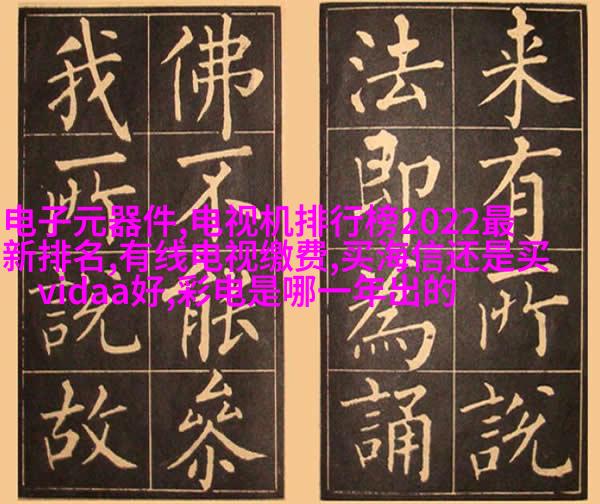 来有所說
法即為誦
佛不能參
我所說故
电子元器件,电视机排行榜2022最
新排名,有线电视缴费,买海信还是买
vidaa好,彩电是哪一年出的